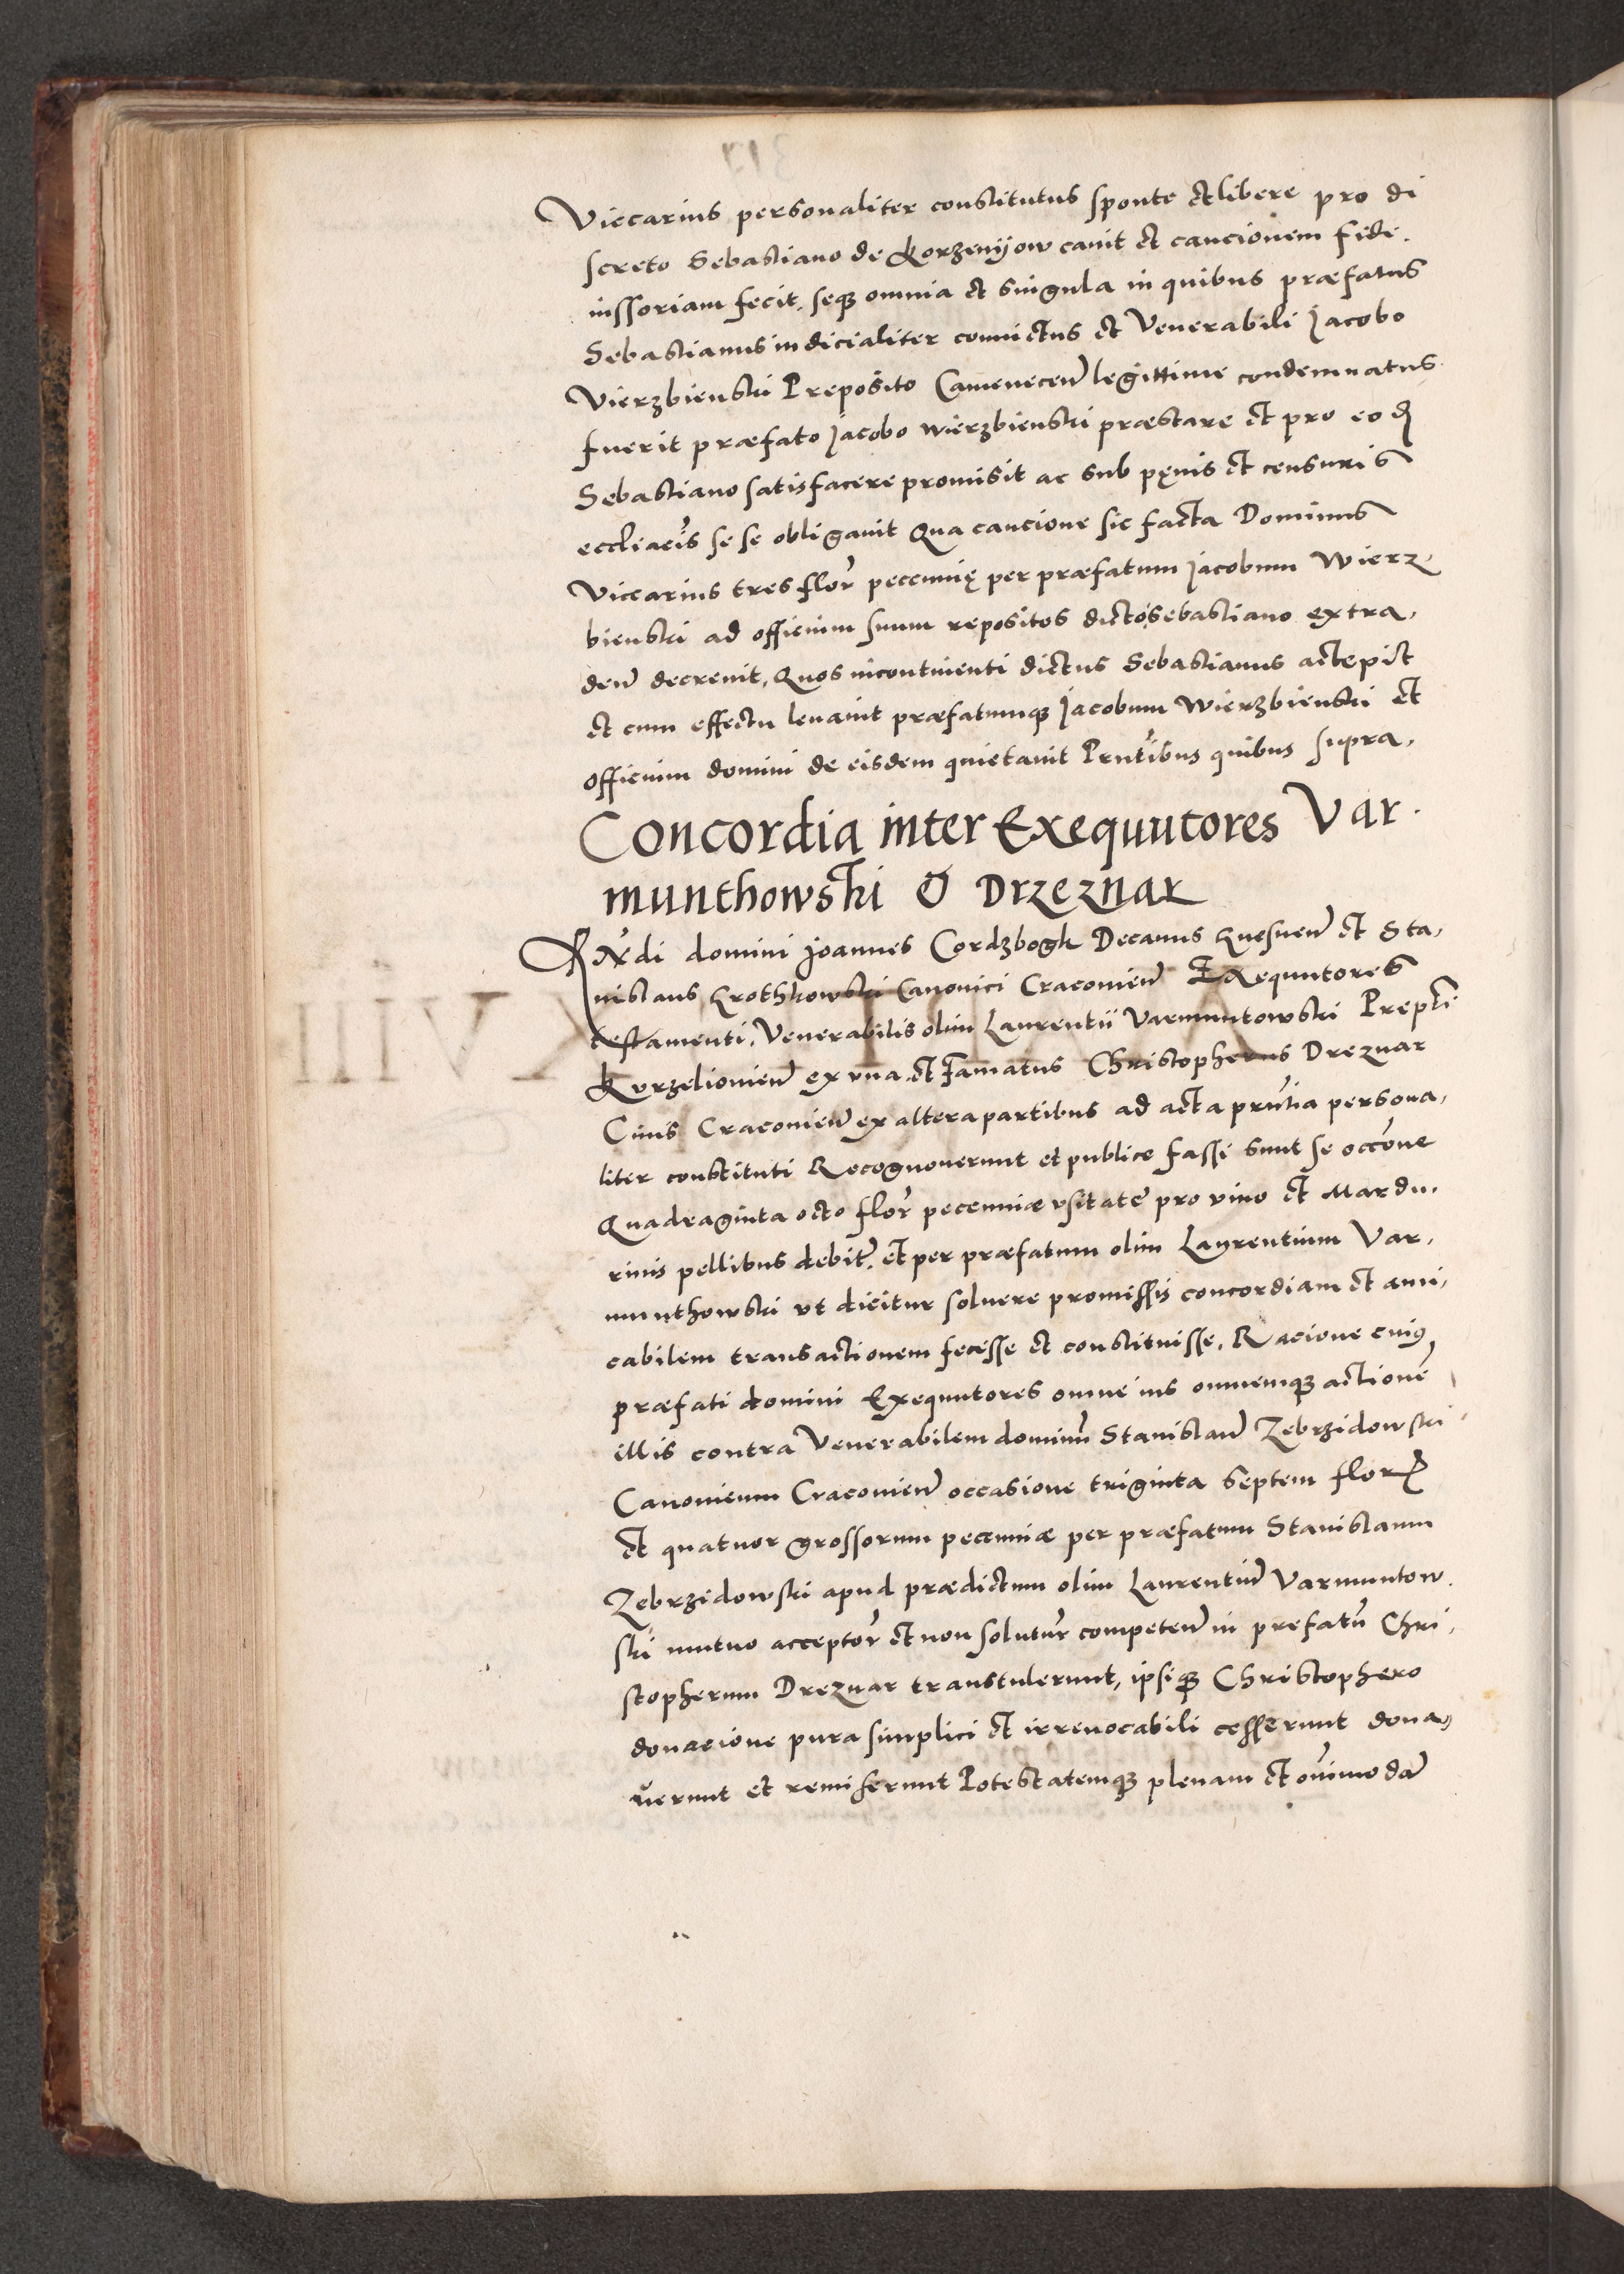 Viccarius personaliter constitutus sponte et libere pro di
screto Sebastiano de Korzenijow cavit et caucionem fide.
iussoriam fecit, seq3 omnia et singula in quibus præfatus
Sebastianus iudicialiter convictus et Venerabili Jacobo
Vierzbienski Preposito Camenecen̄ legittime condemnatus
fuerit præfato Jacobo Wierzbienski præstare et pro eod
Sebastiano satisfacere promisit ac sub pęnis et censuris
eccl̄iacis se se obligavit Qua caucione sic facta Dominus
Viccarius tres flor̄ pecunię per præfatum Jacobum Wierz.
bienski ad officium suum repositos dicto Sebastiano extra,
den̄ decrevit, Quos incontinenti dictus Sebastianus accepit
et cum effectu levavit præfatumq3 Jacobum Wierzbienski et
officium domini de eisdem quietavit Pñtibus quibus supra,
Concordia inter Exequutores Var.
munthowski & Drzeznar
R̄n̄di domini Joannes Cordzbogk Decanus Gnesnen̄ et Sta,
nislaus Grothkowski Canonici Cracovien̄ Exequutores
testamenti, Venerabilis olim Laurentii Varmuntowski Prepti
Kurzelovien̄ ex una et Famatus Christopherus Dreznar
Civis Cracovien̄ ex altera partibus ad acta pñtia persona,
liter constituti Recognoverunt et publice fassi sunt se occōne
Quadraginta octo flor̄ pecuniæ usitate pro vino et Mardu.
rinis pellibus debit̄, et per præfatum olim Laurentium Var,
munthowski ut dicitur solvere promissis concordiam et ami,
cabilem transactionem fecisse et constituisse, Racione cuius
præfati domini Exequutores omne ius omnemq3 actionē
illis contra Venerabilem dominū Stanislaū Zebrzidowski
Canonicum Cracovien̄ occasione triginta septem flor
et quatuor grossorum pecuniæ per præfatum Stanislaum
Zebrzidowski apud prædictum olim Laurentiū Varmuntow.
ski mutuo acceptor̄ et non solutor̄ competen̄ in prefatū Chri,
stopherum Dreznar transtulerunt, ipsiq3 Christophero
donacione pura simplici et irrevocabili cesserunt dona,
verunt et remiserunt Potestatemq3 plenam et om̄imodā